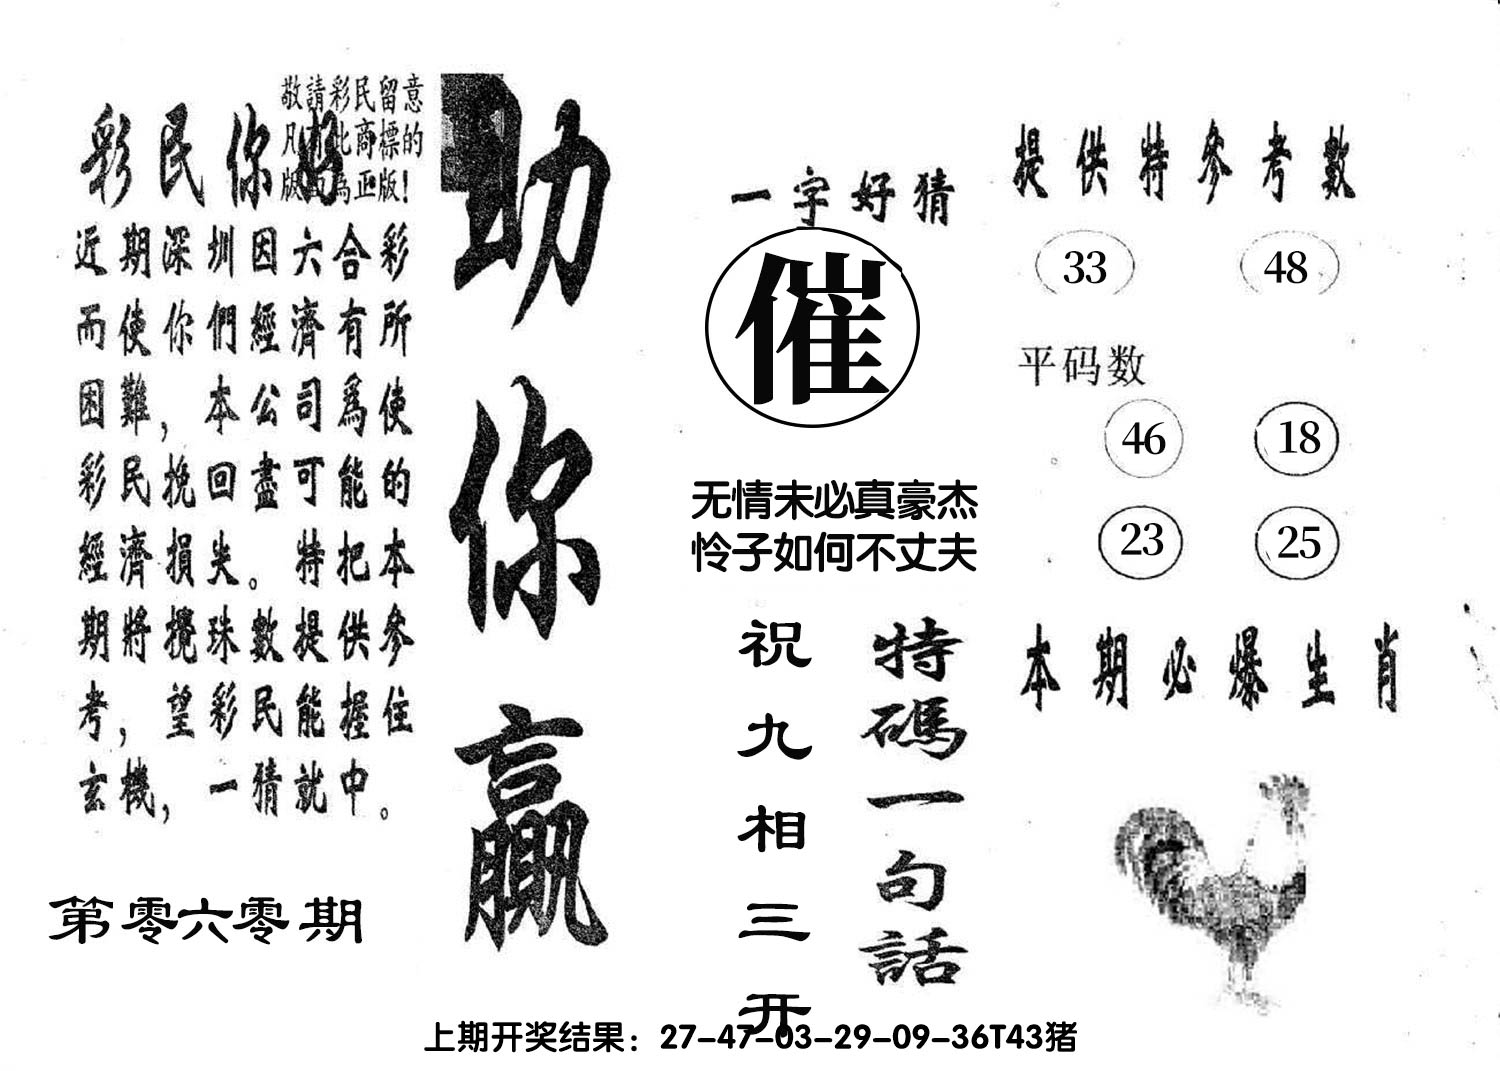 敬請彩民留意
凡有此商標的
版面為正版！
彩民你好
近期深圳因六合彩
而使你們經濟有所
困難，本公司爲使
彩民挽回盡可能的
經濟損失。特把本
期將攪珠數提供參
考，望彩民能握住
玄機，一猜就中。
第零六零期
助你贏
一字好猜
催
无情未必真豪杰
怜子如何不丈夫
特碼一句話
祝九相三开
提供特參考數
33 48
平码数
46 18
23 25
本期必爆生肖
上期开奖结果：27-47-03-29-09-36T43猪